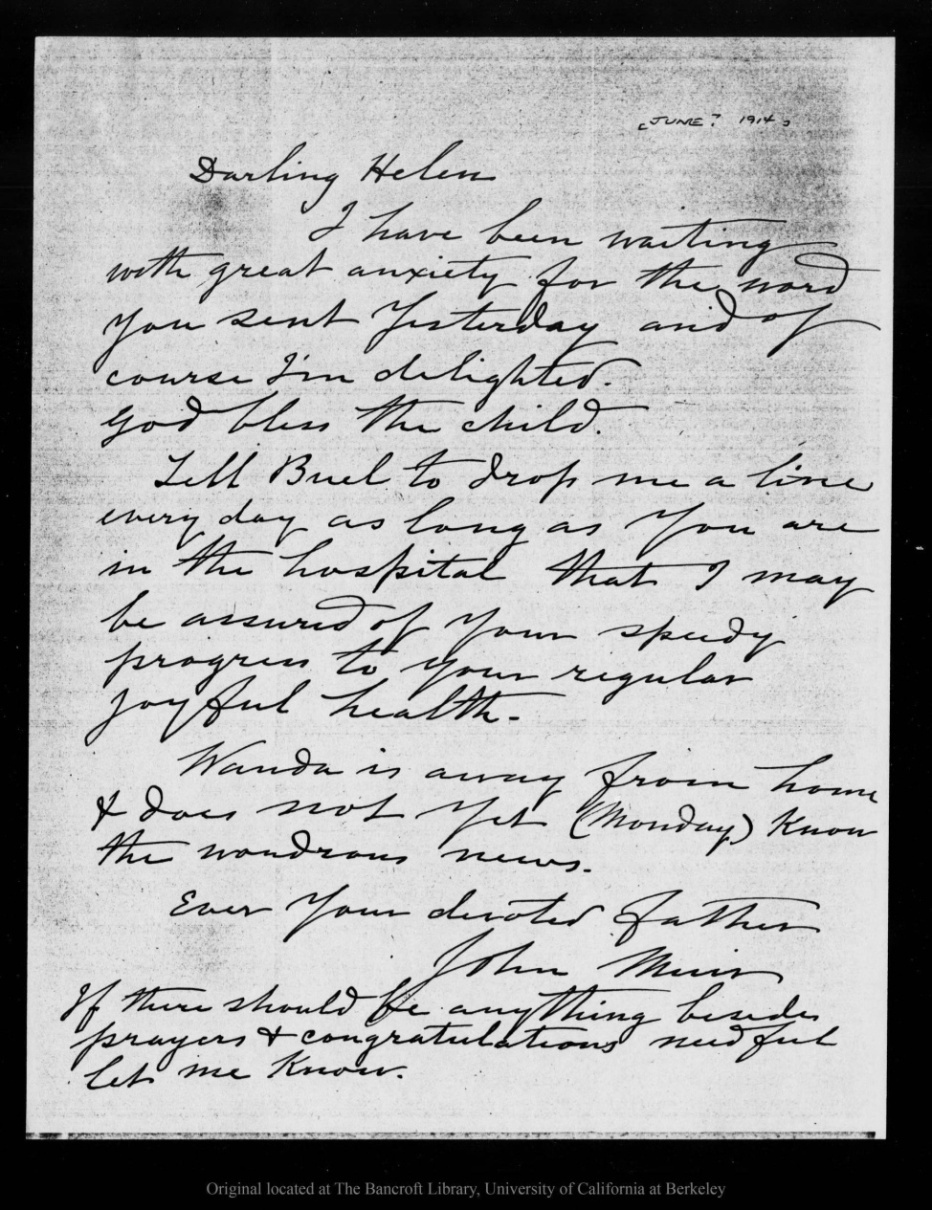 [JUNE? 1914]
Darling Helen
I have been waiting
with great anxiety for the word
you sent Yesterday and of
course I'm delighted.
God bless the child.
Tell Buel to drop me a line
every day as long as you are
in the hospital that I may
be assured of your speedy
progress to your regular
joyful health.
Wanda is away from home
& does not yet (Monday) know
the wondrous news.
Ever Your devoted father
John Muir
If there should be anything besides
prayers & congratulations needful
let me know.
Original located at The Bancroft Library, University of California at Berkeley